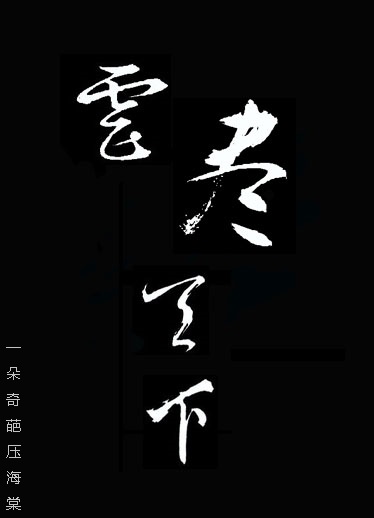 雲尽天下
一朵奇葩压海棠